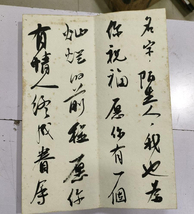 名字陌生人我也为
你祝福愿你有一个
灿烂的前程愿你
有情人终成眷属